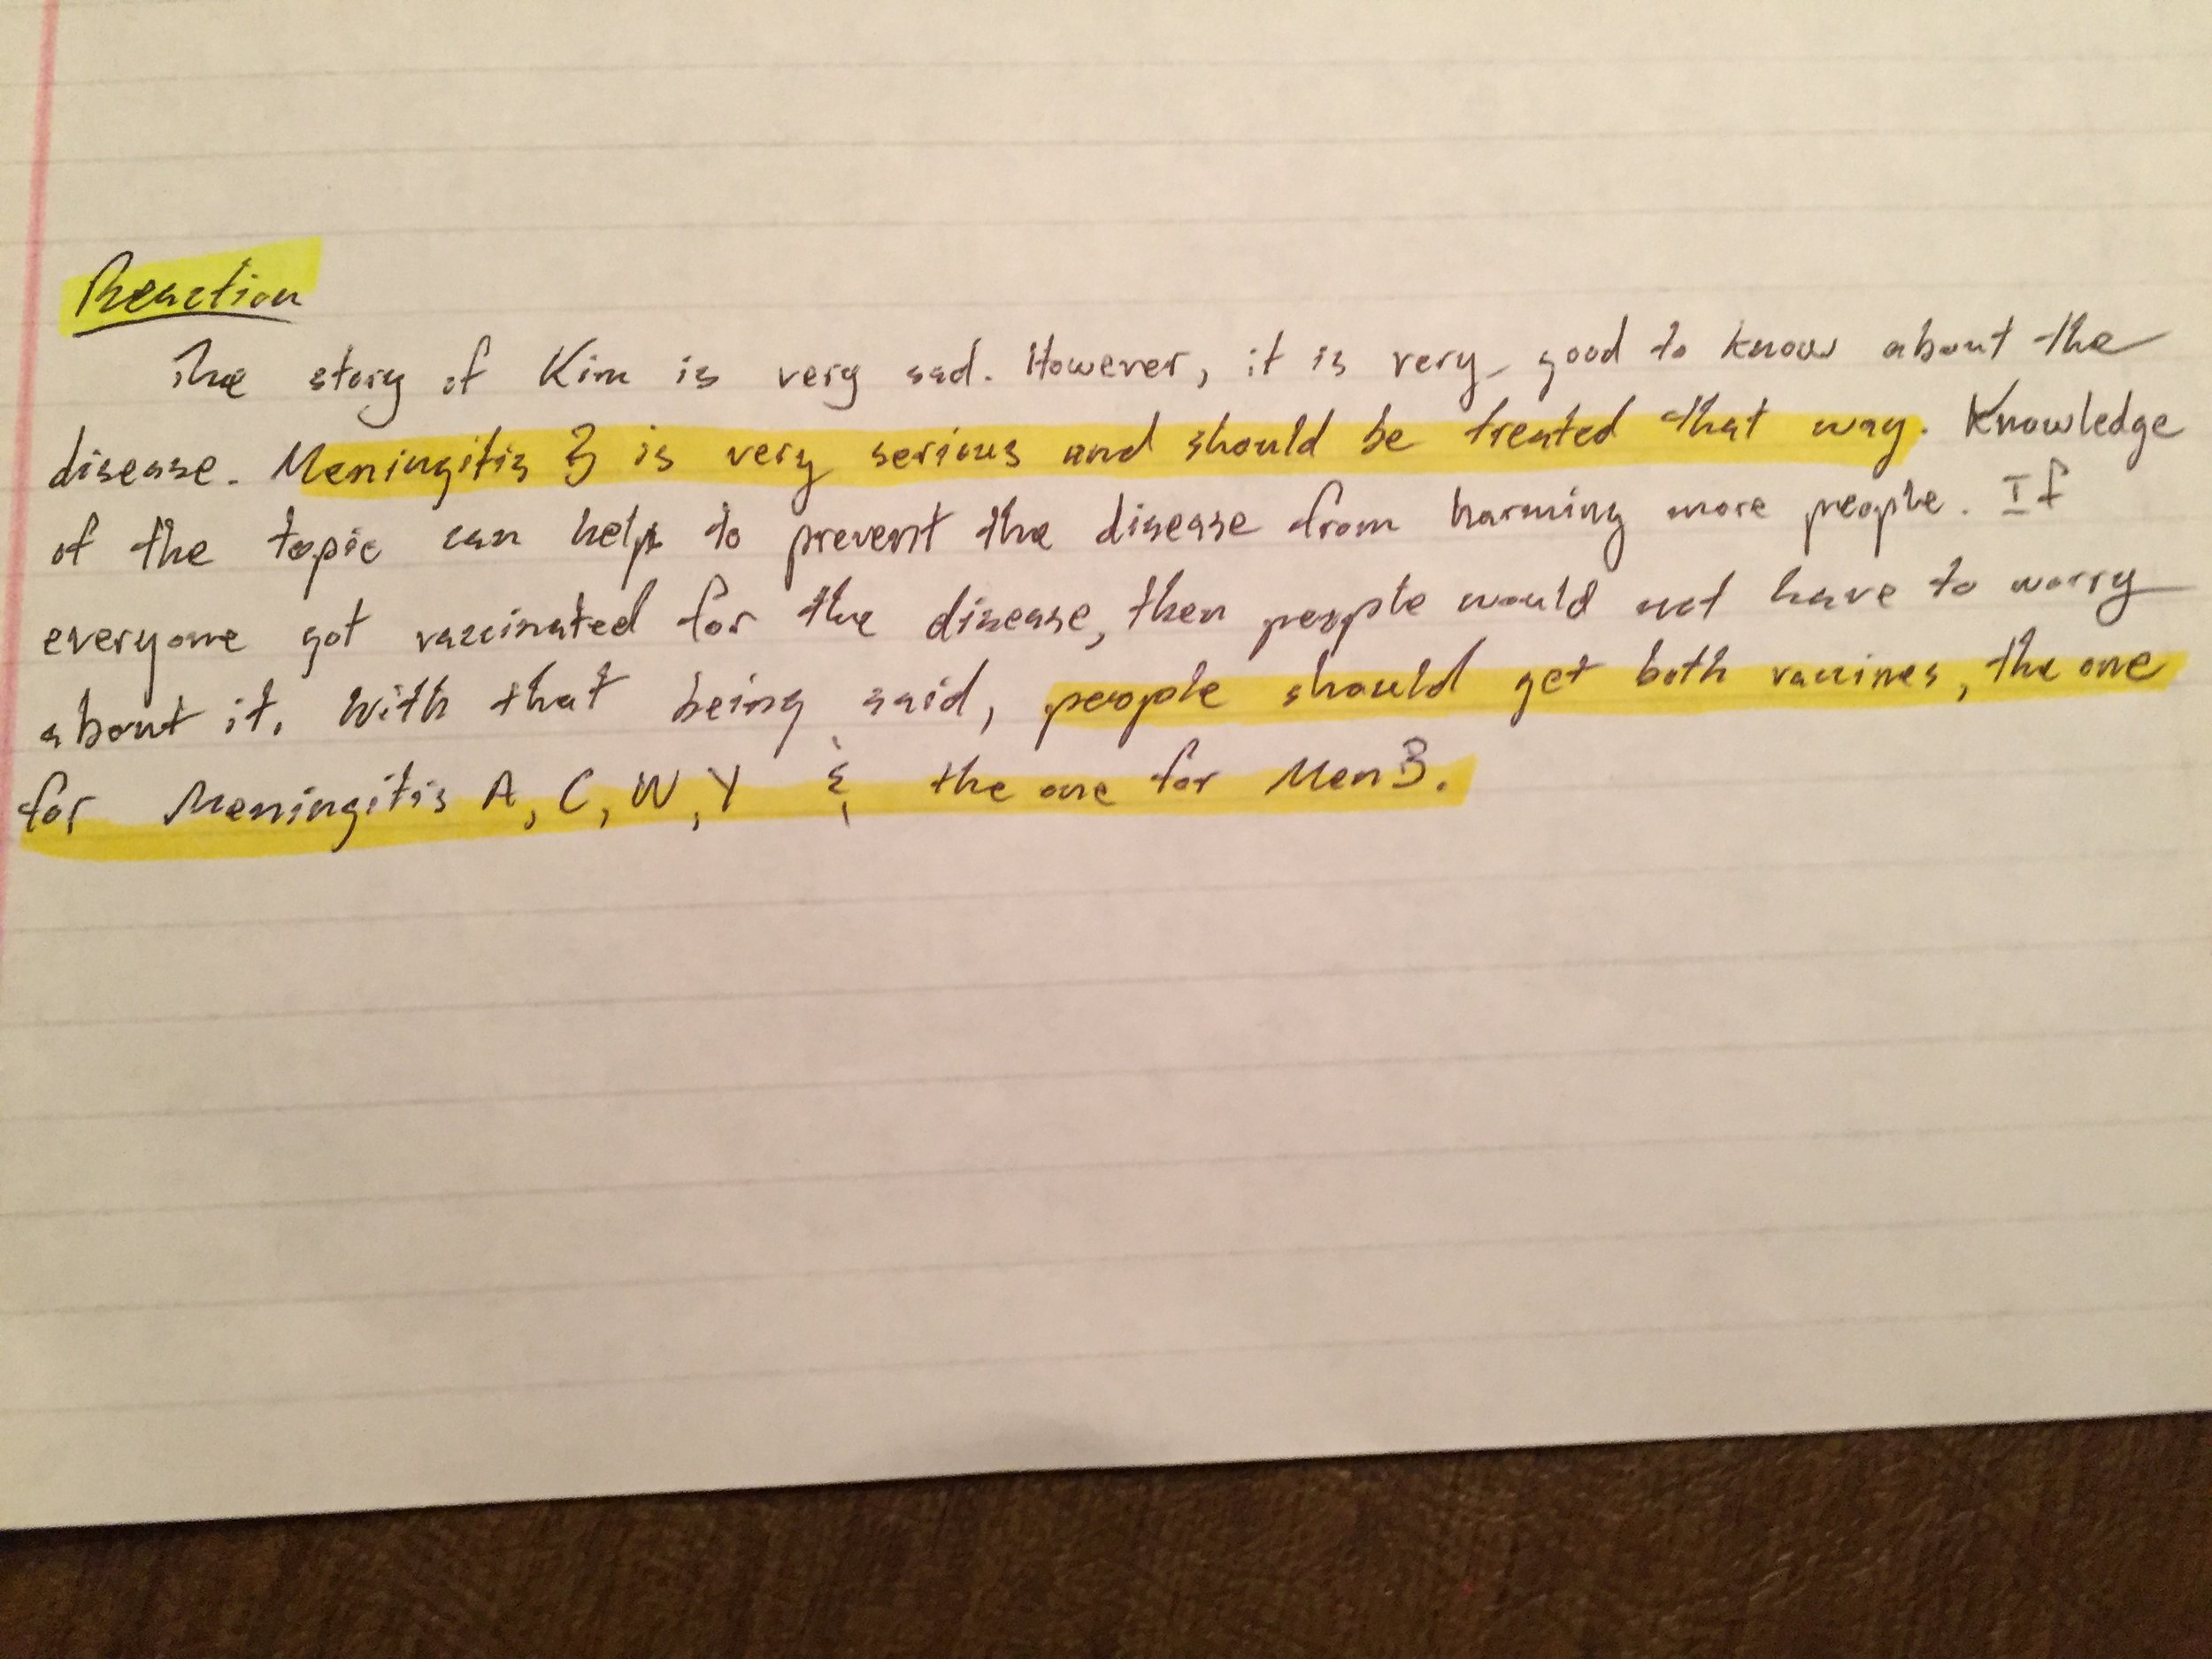 Reaction
The story of Kim is very sad. However, it is very good to know about the
disease. Meningitis B is very serious and should be treated that way. Knowledge
of the topic can help to prevent the disease from harming more people. If
everyone got vaccinated for the disease, then people would not have to worry
about it. With that being said, people should get both vaccines, the one
for Meningitis A, C, W, Y & the one for Men B.